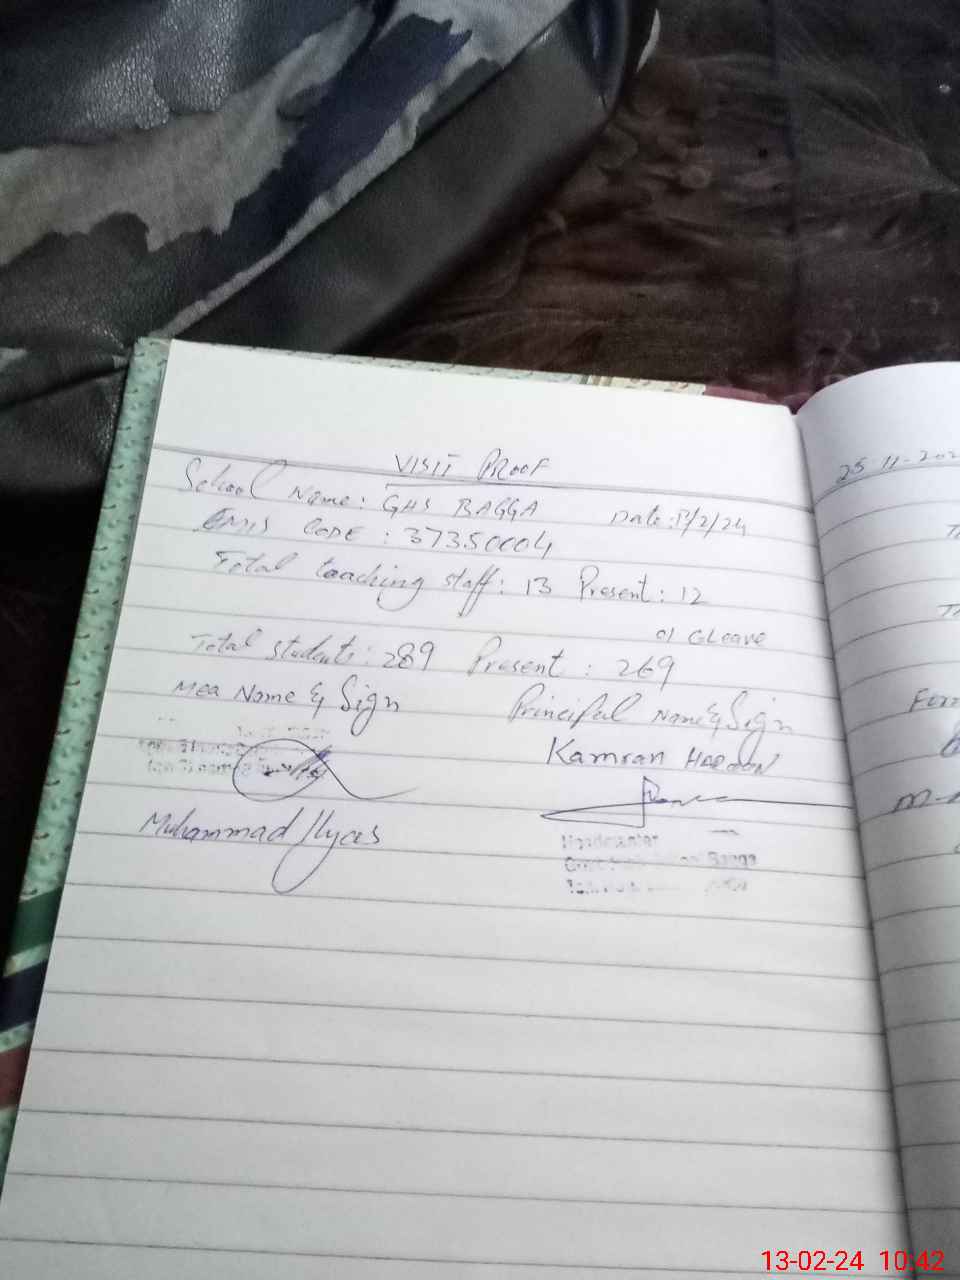 VISIT PROOF
School Name: GHS BAGGA Date: 13/2/24
EMIS CODE : 37350004
Total teaching staff: 13 Present: 12
01 CLeave
Total students: 289 Present: 269
Mea Name & Sign Principal Name & Sign
Kamran HAROON
Muhammad Ilyas
Headmaster
Bagga
25-11-202
13-02-24 10:42